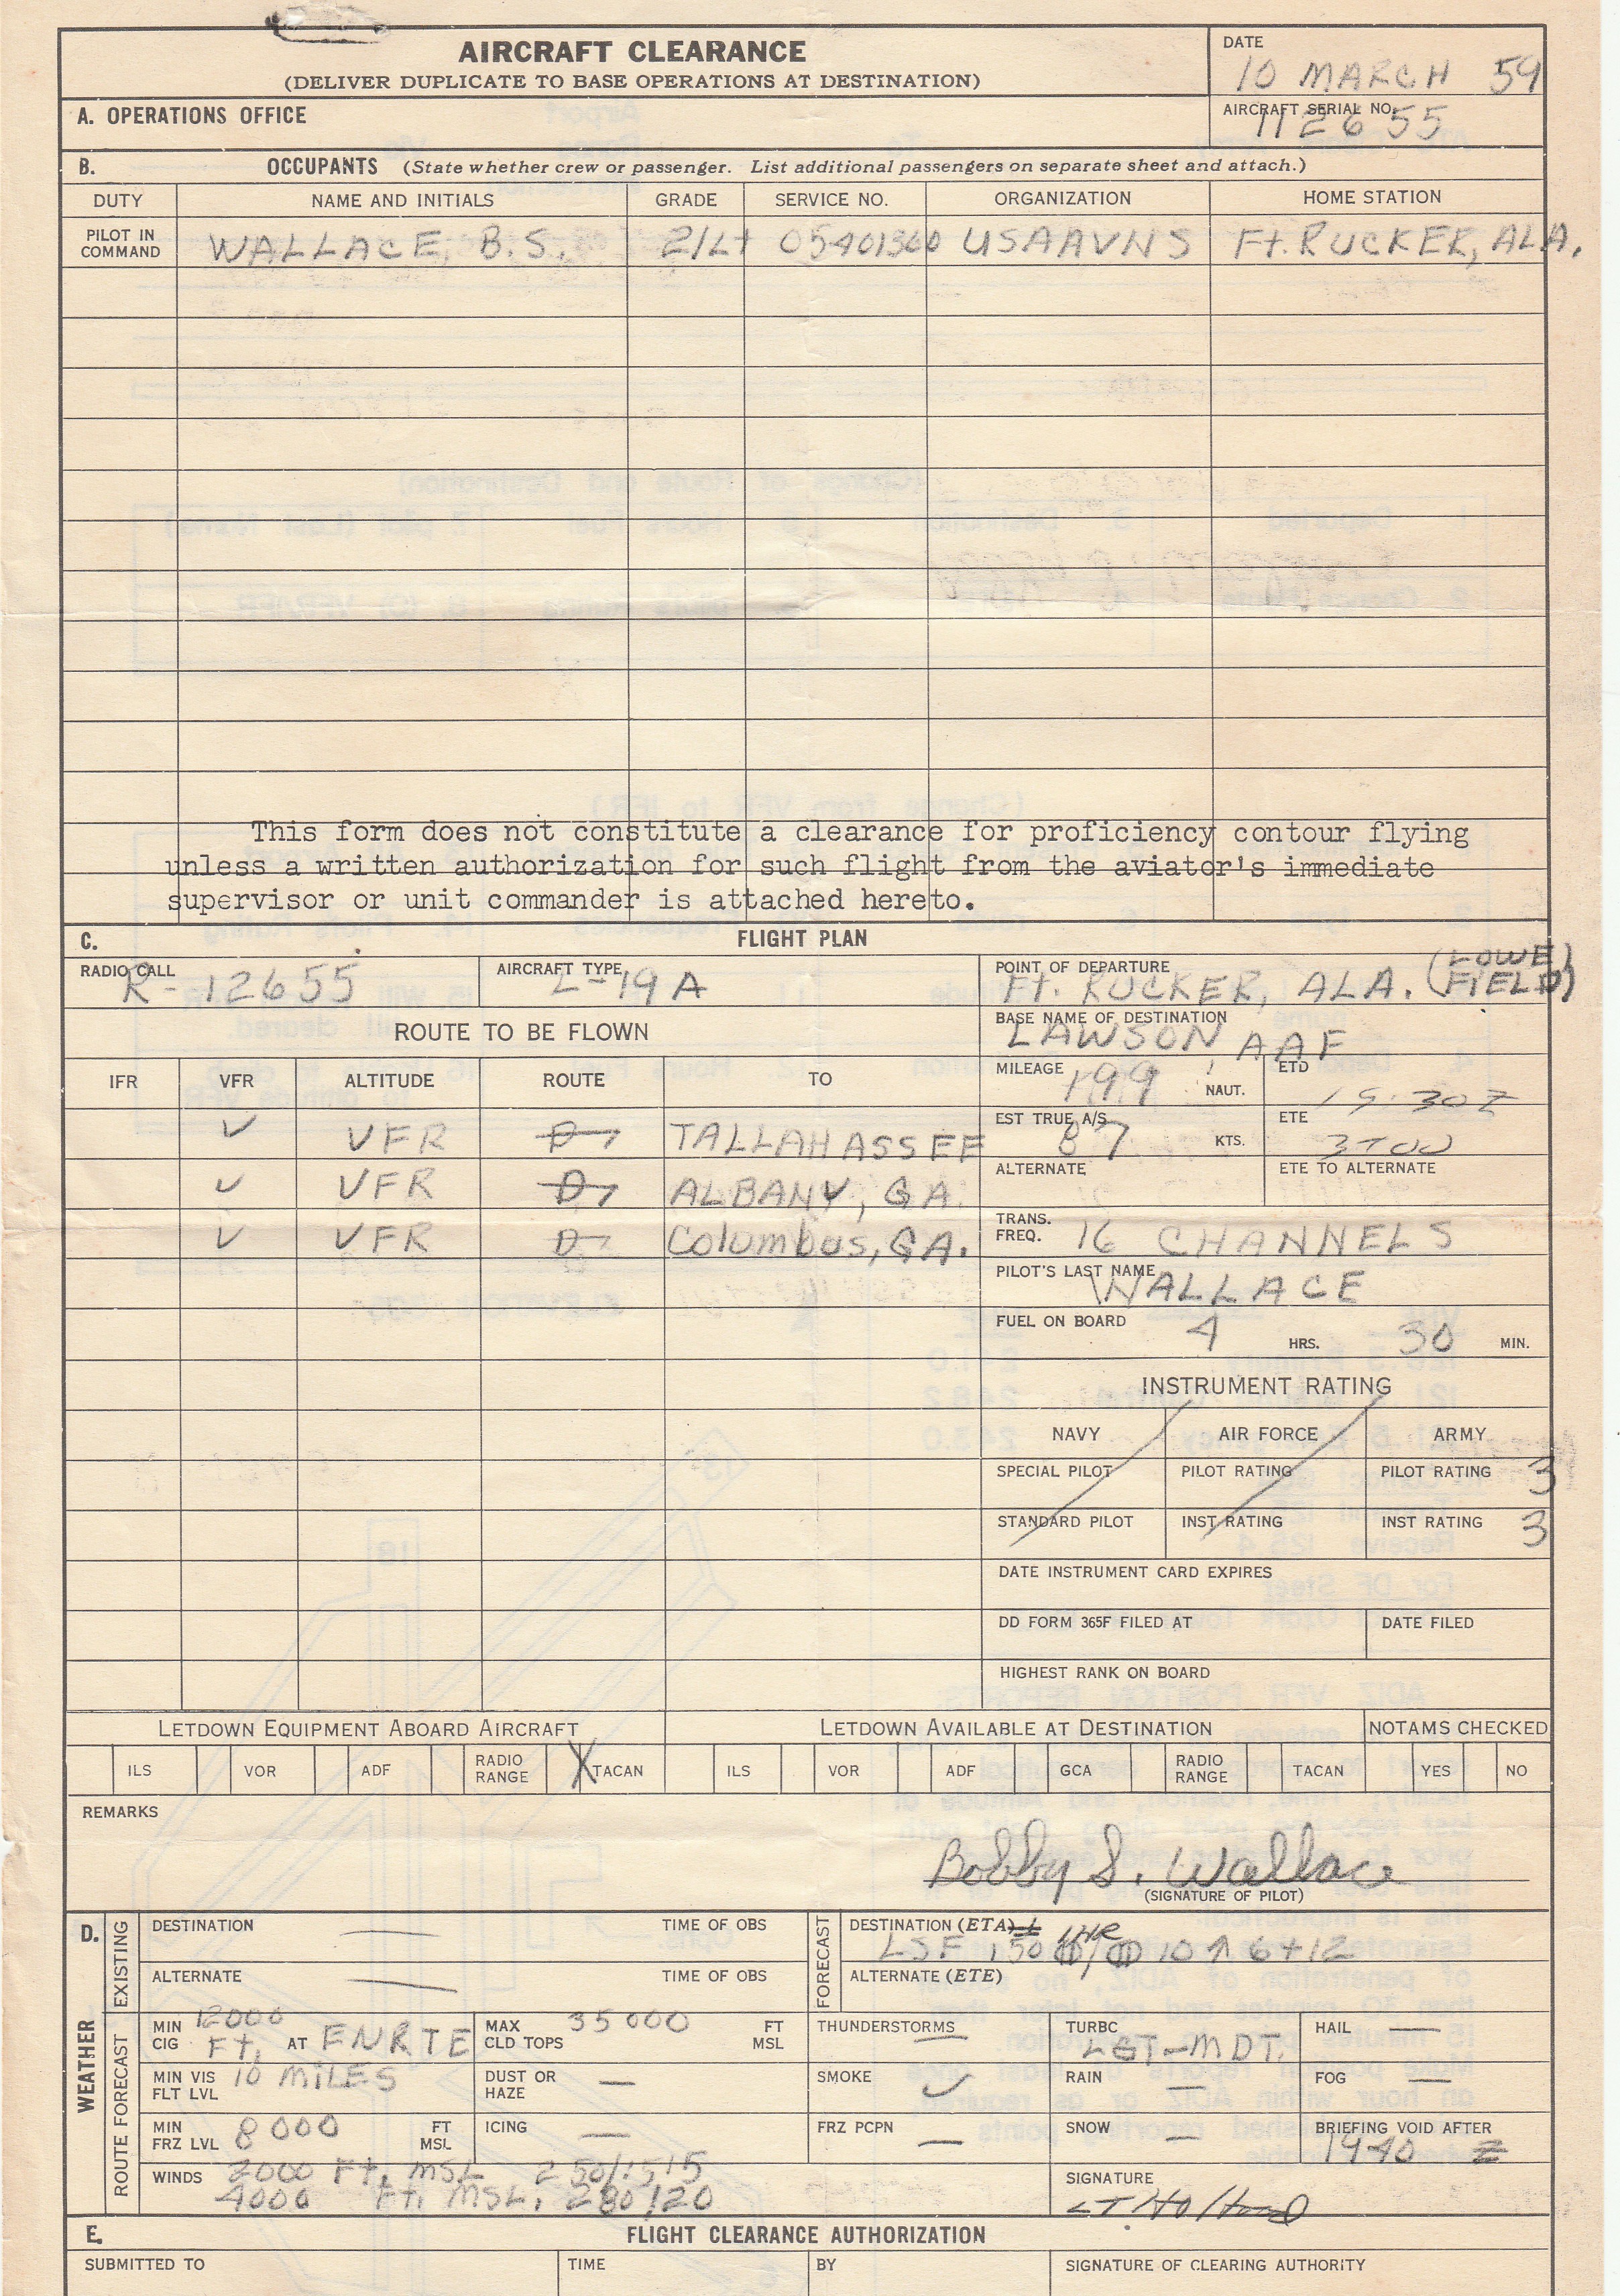 AIRCRAFT CLEARANCE
(DELIVER DUPLICATE TO BASE OPERATIONS AT DESTINATION)
DATE
10 MARCH 59
A. OPERATIONS OFFICE
AIRCRAFT SERIAL NO.
112655
B. OCCUPANTS (State whether crew or passenger. List additional passengers on separate sheet and attach.)
DUTY NAME AND INITIALS GRADE SERVICE NO. ORGANIZATION HOME STATION
PILOT IN COMMAND WALLACE, B.S. 2/Lt 05401360 USAAVNS Ft. RUCKER, ALA.
This form does not constitute a clearance for proficiency contour flying
unless a written authorization for such flight from the aviator's immediate
supervisor or unit commander is attached hereto.
C. FLIGHT PLAN
RADIO CALL R-12655 AIRCRAFT TYPE L-19A
POINT OF DEPARTURE Ft. RUCKER, ALA. (LOWE FIELD)
ROUTE TO BE FLOWN
BASE NAME OF DESTINATION LAWSON AAF
IFR VFR ALTITUDE ROUTE TO
MILEAGE 199 NAUT. ETD 1530Z
✓ VFR D TALLAHASSEE
EST TRUE A/S 87 KTS. ETE 3+00
✓ VFR D ALBANY, GA.
ALTERNATE ETE TO ALTERNATE
✓ VFR D Columbus, GA.
TRANS. FREQ. 16 CHANNELS
PILOT'S LAST NAME WALLACE
FUEL ON BOARD 4 HRS. 30 MIN.
INSTRUMENT RATING
NAVY AIR FORCE ARMY
SPECIAL PILOT PILOT RATING PILOT RATING 3
STANDARD PILOT INST RATING INST RATING 3
DATE INSTRUMENT CARD EXPIRES
DD FORM 365F FILED AT DATE FILED
HIGHEST RANK ON BOARD
LETDOWN EQUIPMENT ABOARD AIRCRAFT LETDOWN AVAILABLE AT DESTINATION NOTAMS CHECKED
ILS VOR ADF RADIO RANGE X TACAN ILS VOR ADF GCA RADIO RANGE TACAN YES NO
REMARKS
Bobby S. Wallace
(SIGNATURE OF PILOT)
D. WEATHER
EXISTING
DESTINATION — TIME OF OBS
ALTERNATE — TIME OF OBS
FORECAST
DESTINATION (ETA)
LSF 10 ↑ 6+12
ALTERNATE (ETE)
ROUTE FORECAST
MIN CIG 12000 Ft. AT ENRTE
MAX CLD TOPS 35000 FT MSL
THUNDERSTORMS —
TURBC LGT-MDT.
HAIL —
MIN VIS FLT LVL 10 MILES
DUST OR HAZE —
SMOKE ✓
RAIN —
FOG —
MIN FRZ LVL 8000 FT MSL
ICING —
FRZ PCPN —
SNOW —
BRIEFING VOID AFTER 1940 Z
WINDS 2000 Ft. MSL 250/
4000 Ft. MSL. 280/20
SIGNATURE
LT
E. FLIGHT CLEARANCE AUTHORIZATION
SUBMITTED TO TIME BY SIGNATURE OF CLEARING AUTHORITY